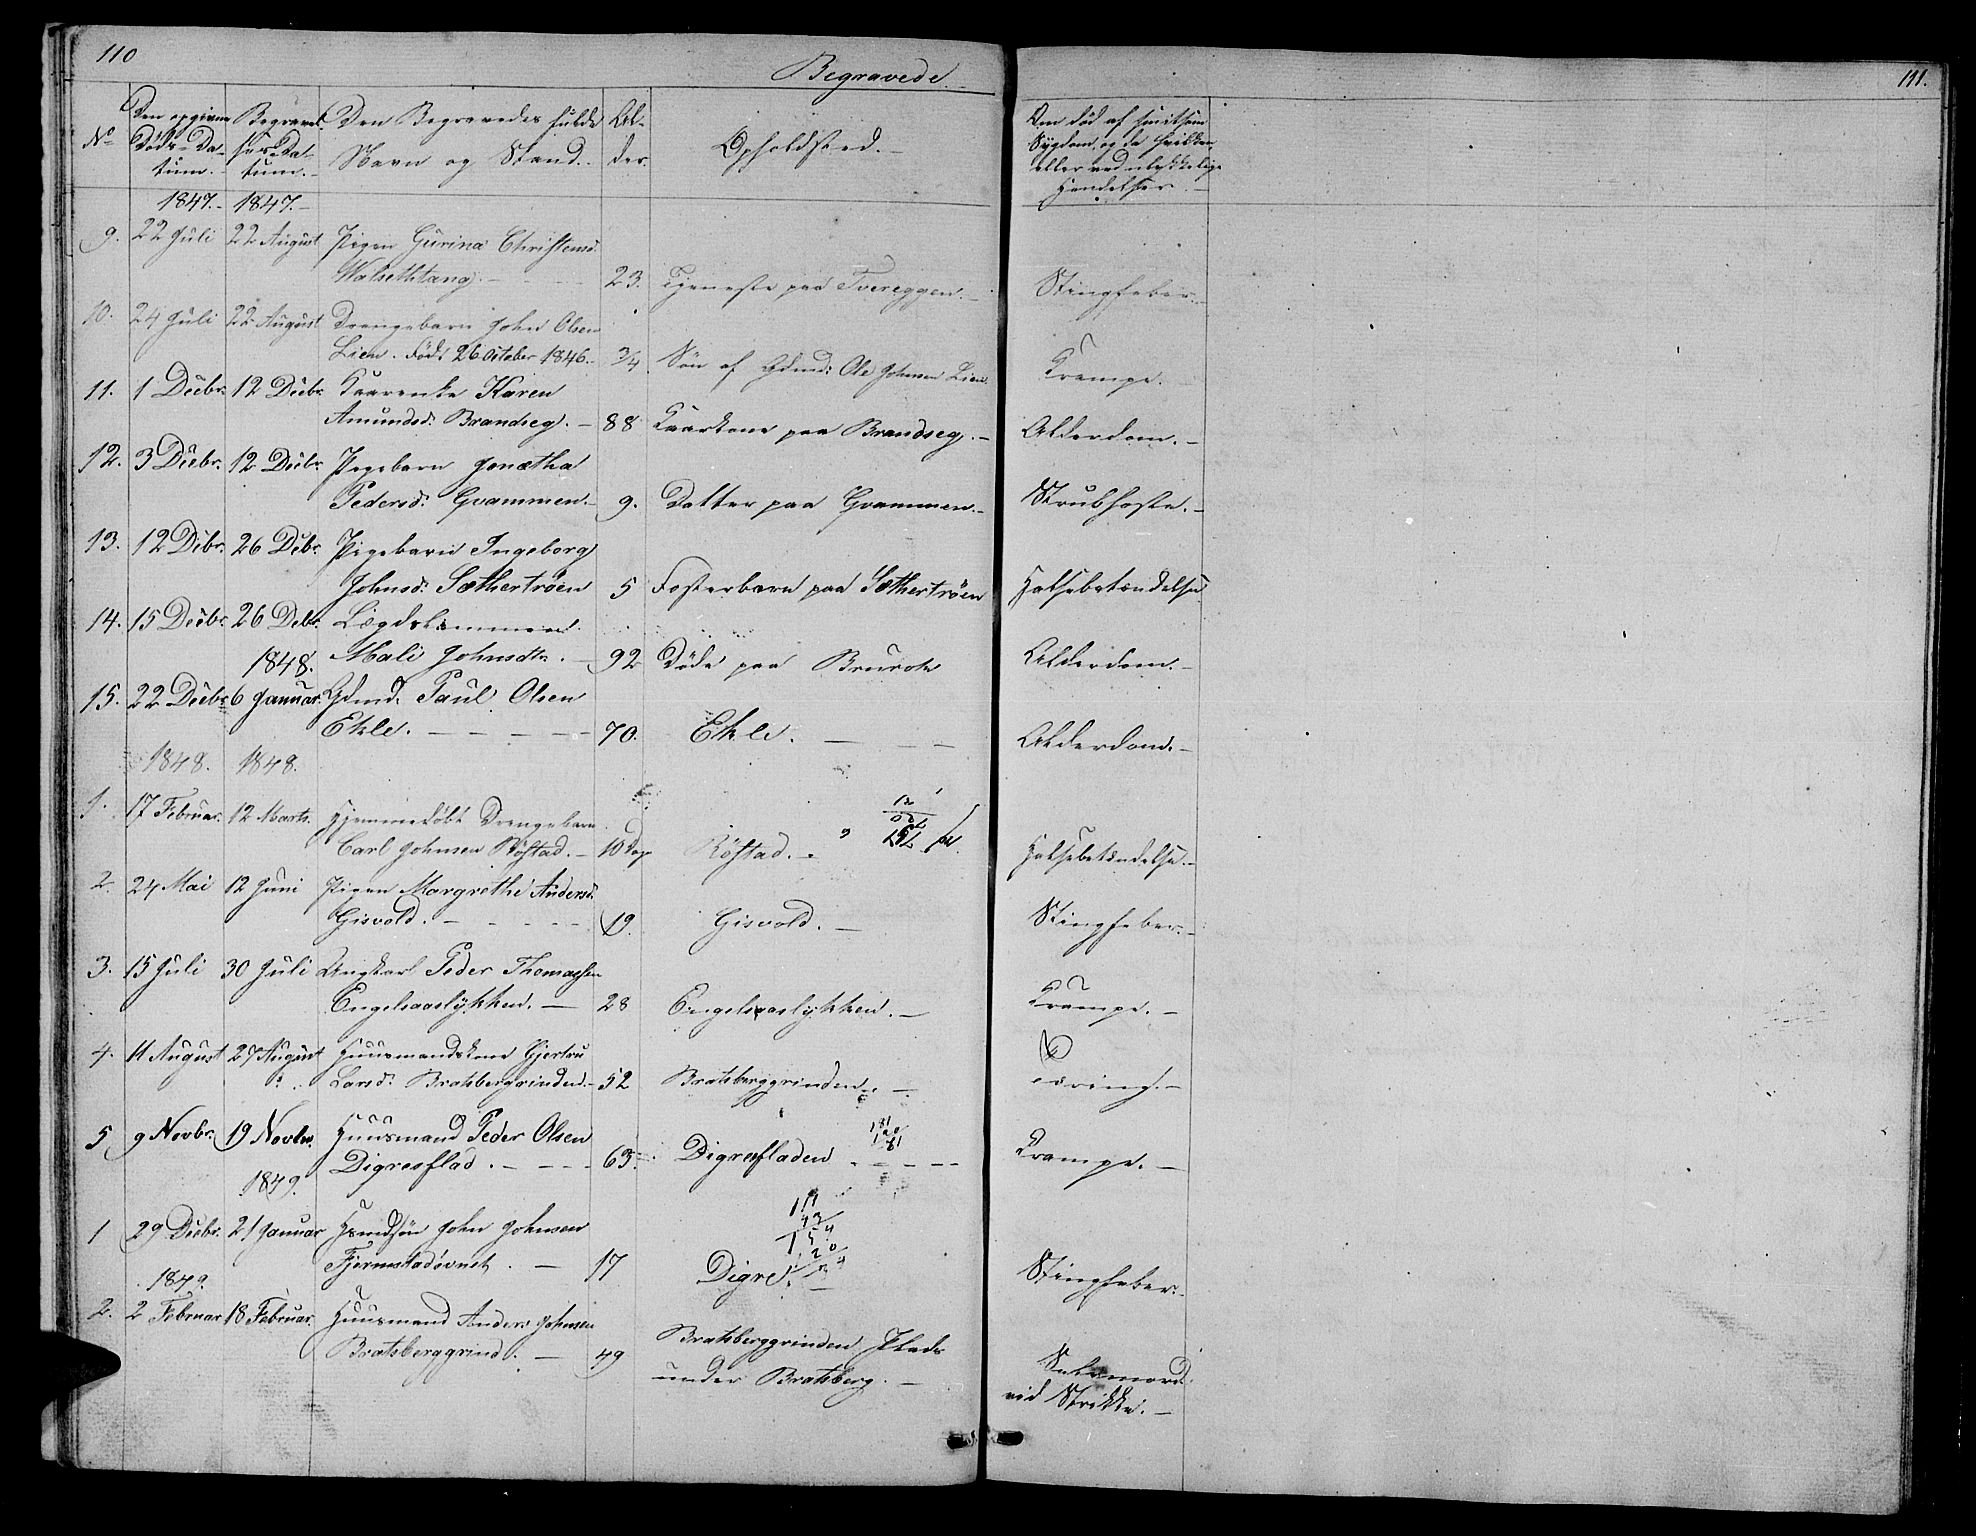 110
Begravede.
111.
No
Den opgivne Døds-Datum.
Begravelses-Datum.
Den Begravedes fulde Navn og Stand.
Alder.
Opholdsted.
Om død af smitsom Sygdom, og da hvilken, eller ved ulykkelige Hendelser.
1847. 1847.
9. 22 Juli 22 August Pigen Gurina Christensd:
Walsethtang. 23. Tjeneste paa Tvereggen. Stingfeber.
10. 24 Juli 22 August Drengebarn John Olsen
Lien. Født 26 October 1846. 3/4 Søn af Gdmd: Ole Johnsen Lien. Krampe.
11. 1 Decbr. 12 Decbr. Kaarenke Karen
Amundsd: Brandseg. 88 Kaarkone paa Brandseg. Alderdom.
12. 3 Decbr. 12 Decbr. Pigebarn Jonætha
Pedersd: Gvammen. 9. Datter paa Gvammen. Strubhoste.
13. 12 Decbr. 26 Debr. Pigebarn Ingeborg
Johnsd: Sæthertrøen 5 Fosterbarn paa Sæthertrøen Halsebetændelse
14. 15 Decbr. 26 Debr. Lægdslemmen
1848. Mali Johnsdtr. 92 Døde paa Brurok Alderdom.
15. 22 Decbr. 6 Januar. Gdmd: Paul Olsen
Ekle. 70. Ekle. Alderdom.
1848. 1848.
1. 17 Februar. 12 Marts. Hjemmedøbt Drengebarn
Carl Johnsen Røstad. 10 Dage Røstad. Halsebetændelse.
2. 24 Mai 12 Juni Pigen Margrethe Andersd:
Gisvold. 19. Gisvold. Stingfeber.
3. 15 Juli 30 Juli Ungkarl Peder Thomassen
Engelsaaslykken. 28 Engelsaaslykken. Krampe.
4. 11 August 27 August Huusmandskone Gjertru
Larsd: Bratsbergrinden. 52 Bratsberggrinden.
5 9 Novbr. 19 Novbr. Huusmand Peder Olsen
Digresflad. 63. Digresfladen Krampe.
1849.
1 29 Decbr. 21 Januar Hsmdsøn John Johnsen
Fjermstadøvnet. 17 Digre. Stingfeber.
1849.
2. 2 Februar 18 Februar. Huusmand Anders Johnsen
Bratsberggrind. 49 Bratsberggrinden Plads
under Bratsberg. Selvmord
ved Strikke.